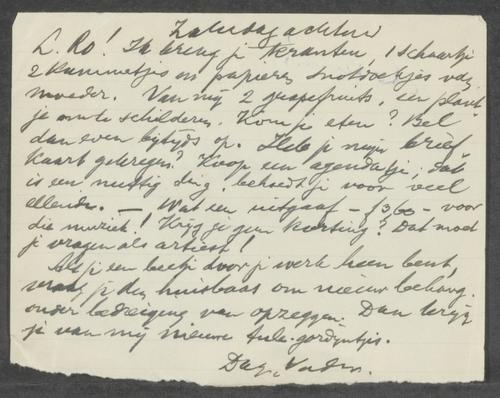 Zaterdagachtend
L. Ro! Ik breng je kranten, 1 schaartje
2 kammetjes en papieren snotdoekjes van
moeder. Van mij 2 grapefruits, een plank
je om te schilderen. Kom je eten? Bel
dan even bijtijds op. Heb je mijn brief
kaart gekregen? Koop een agendatje, dat
is een nuttig ding, behoedt je voor veel
ellende. — Wat een uitgaaf – ƒ 3,60 – voor
die muziek! Krijg je geen korting? Dat moet
je vragen als artiest!
Als je een beetje door je werk heen bent,
vraag je den huisbaas om nieuw behang
onder bedreiging van opzeggen. Dan krijg
je van mij nieuwe tule-gordijntjes.
Dag, Vader.